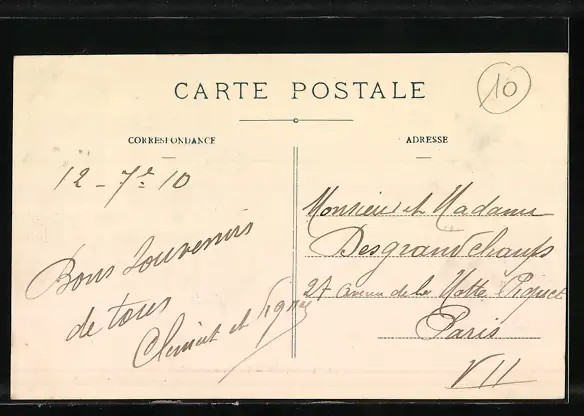 CARTE POSTALE
10
CORRESPONDANCE
ADRESSE
12 - 7re 10
Bons Souvenirs
de tous
Clement et
Monsieur et Madame
Desgrandchamps
27 avenue de la Motte Piquet
Paris
VII